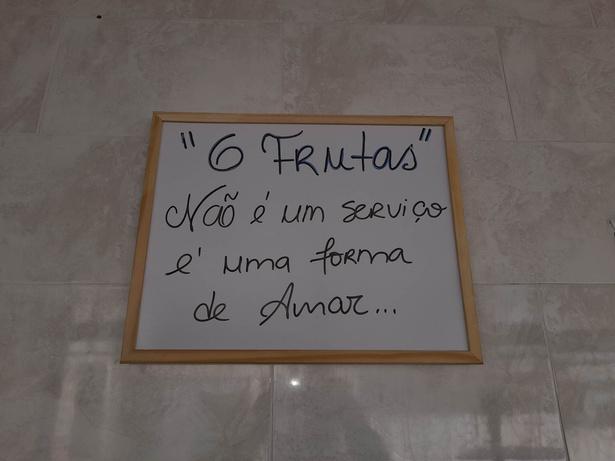 "6 Frutas"
Não é um serviço
é uma forma
de Amar...